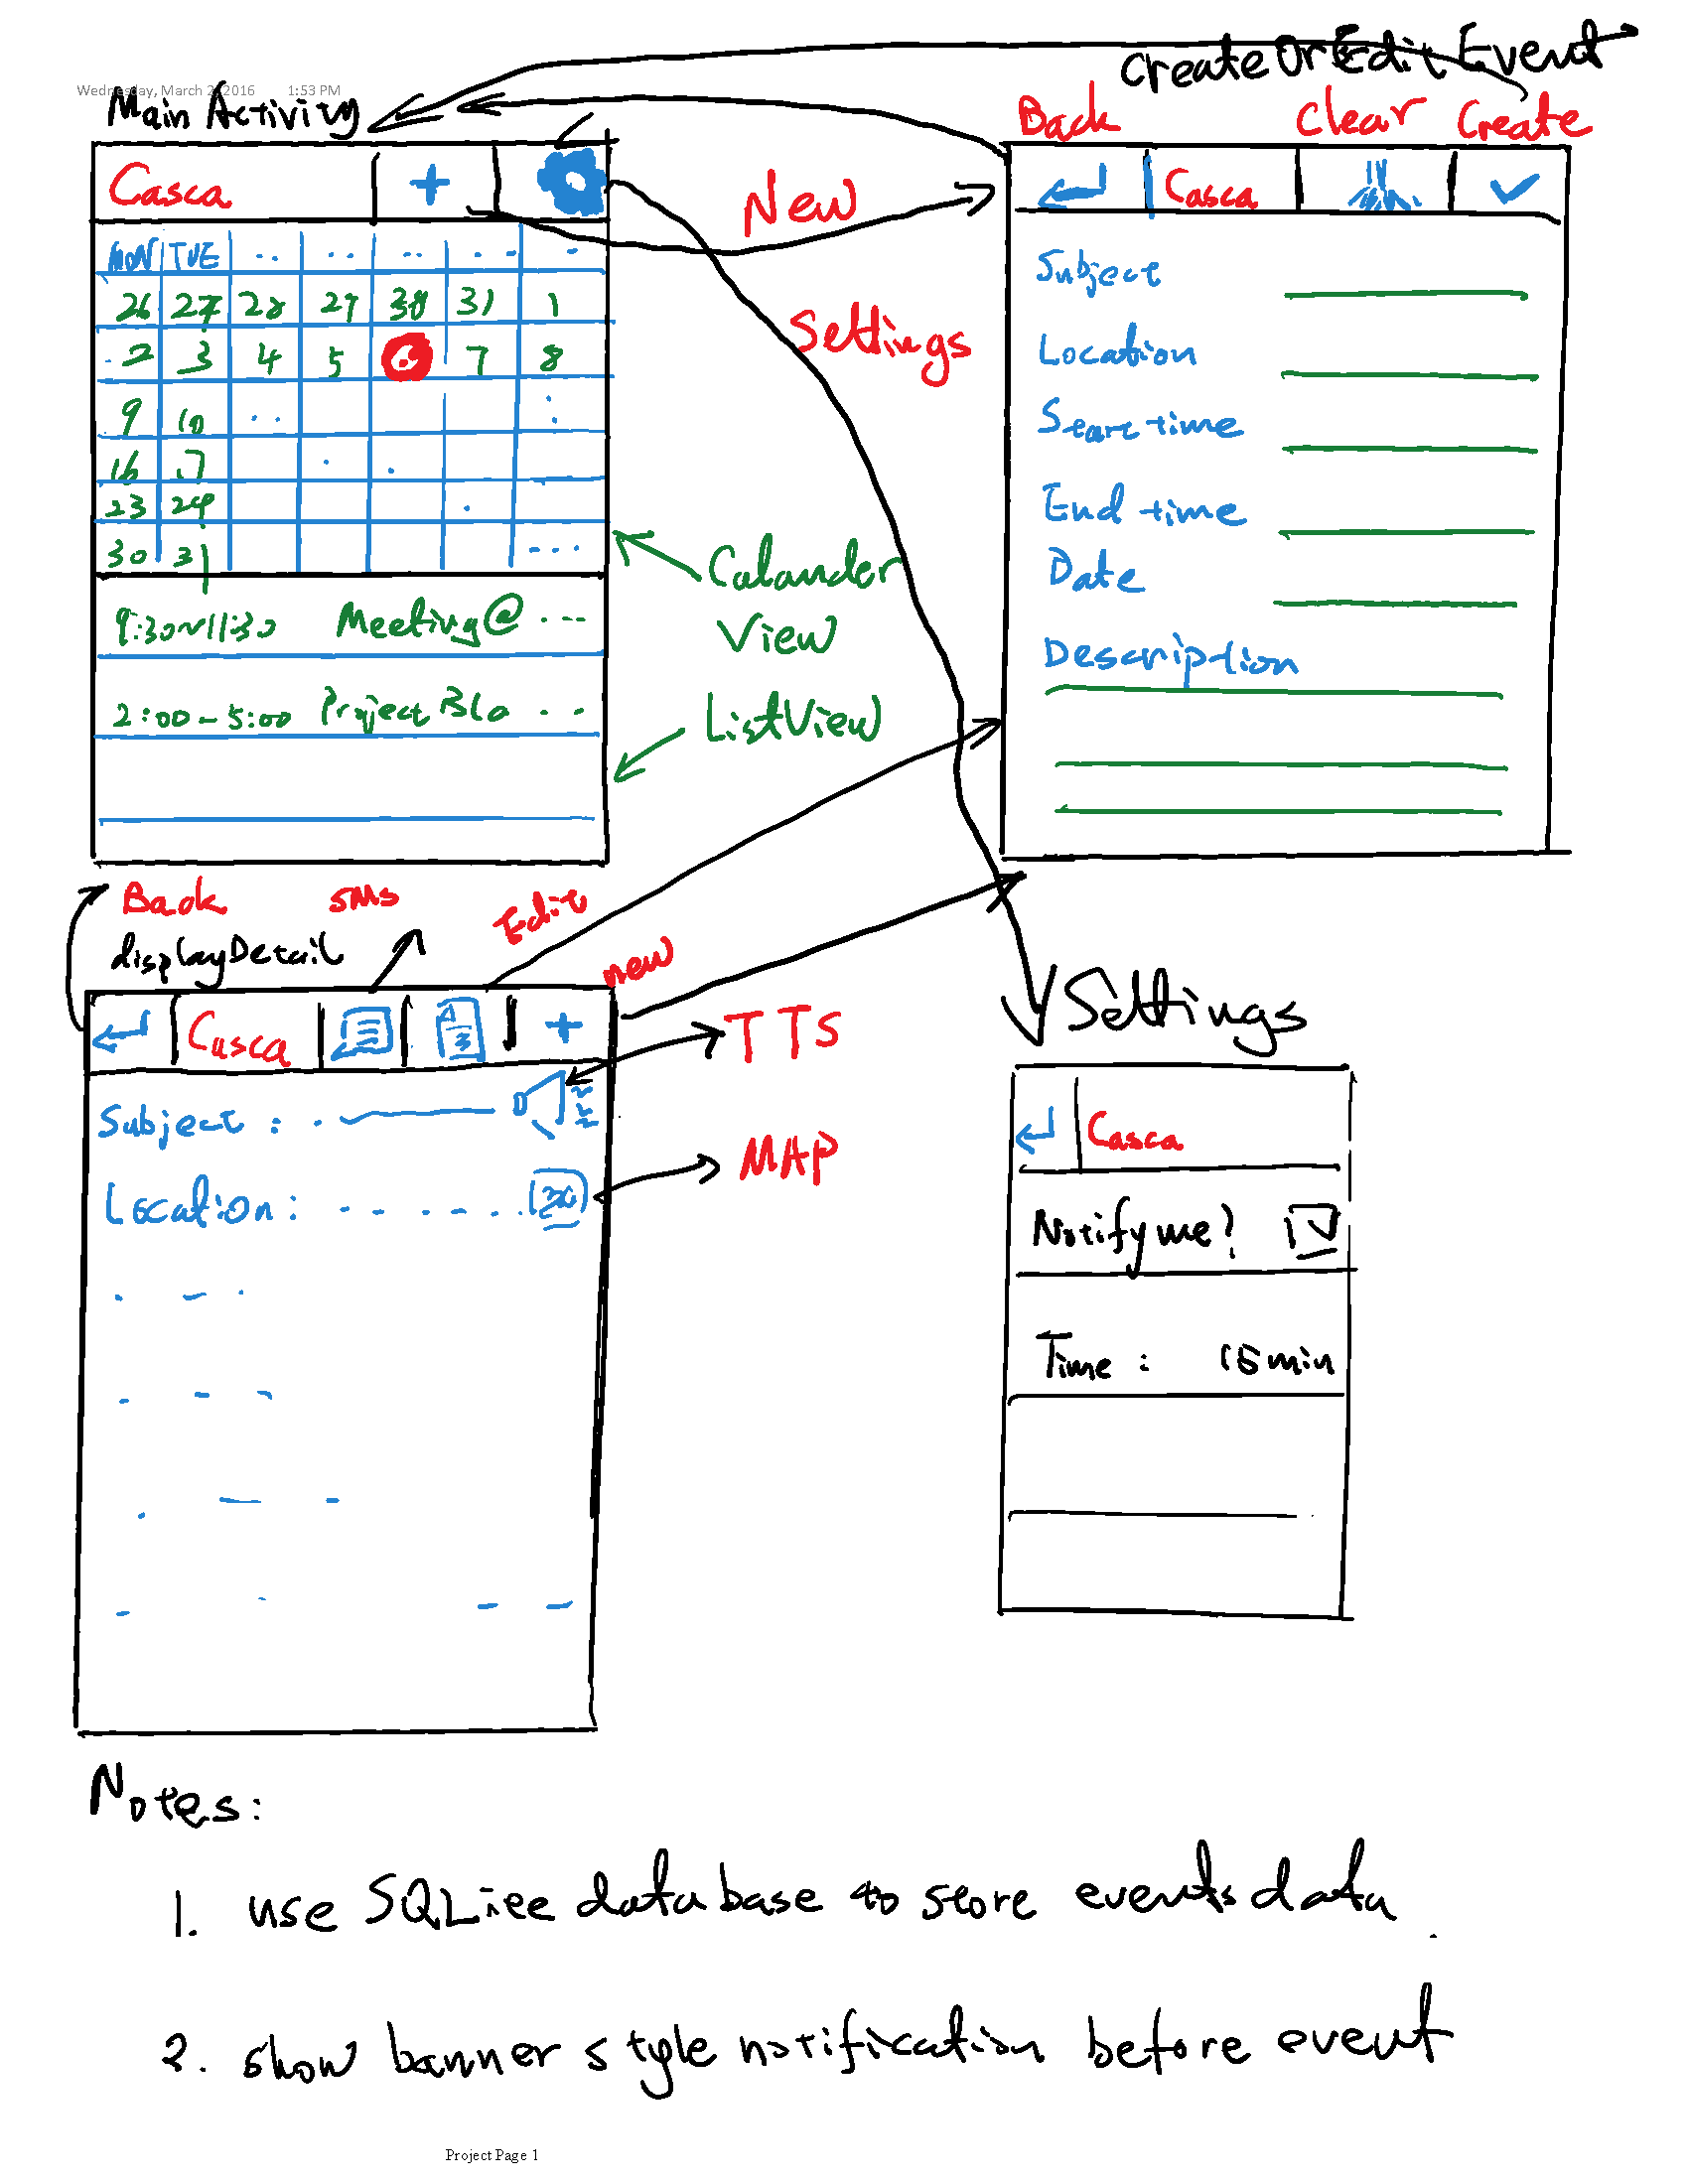 Wednesday, March 2, 2016 1:53 PM
Main Activity
Casca +
MON TUE
26 27 28 29 30 31 1
2 3 4 5 6 7 8
9 10
16 17
23 24
30 31
9:30~11:30 Meeting@ ...
2:00-5:00 Project Bla ...
New
Settings
Calander
View
ListView
createOrEdit Event
Back Clear Create
Casca
Subject
Location
Start time
End time
Date
Description
Back SMS Edit new
displayDetail
Casca +
Subject :
Location :
TTS
MAP
Settings
Casca
Notify me?
Time : 15 min
Notes:
1. use SQLite database to store events data.
2. show banner style notification before event
Project Page 1